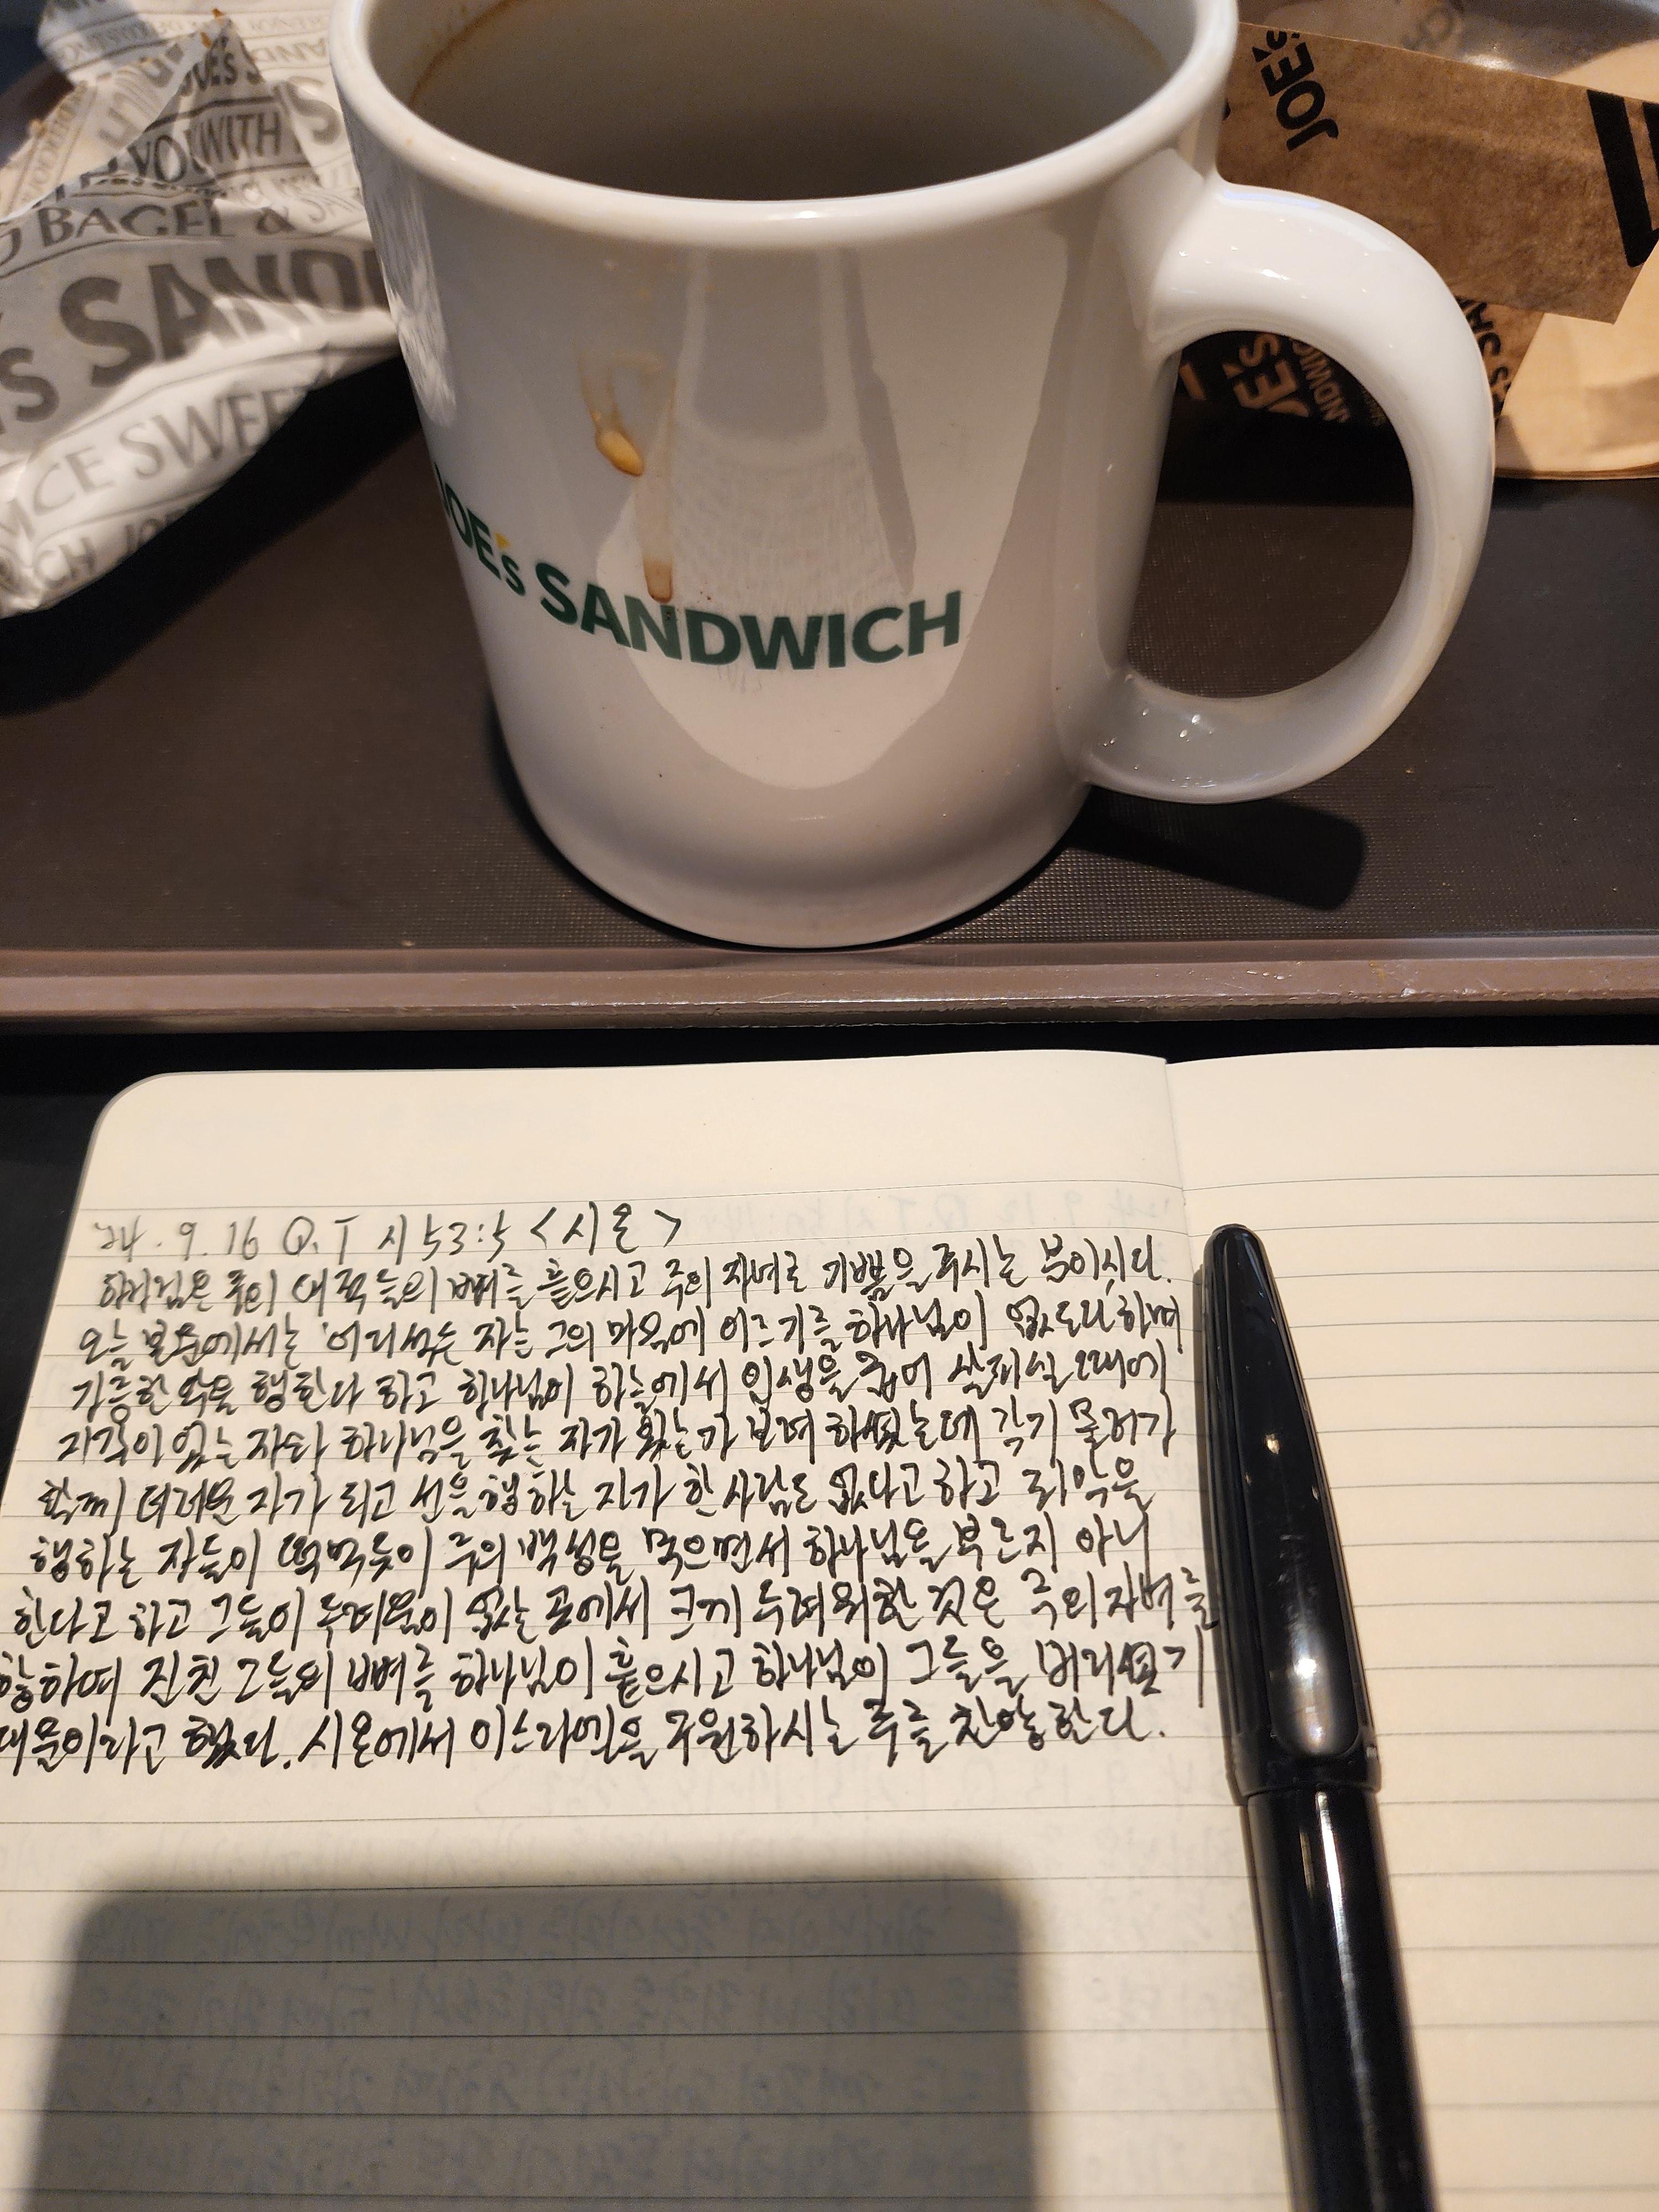 JOE's
YOU WITH
BAGEL &
SAND
S SWEE
JOE's
JOE's SANDWICH
'24. 9. 16 Q.T 시 53:5 <시온>
하나님은 주의 대적들의 뼈를 흩으시고 주의 자녀로 기쁨을 주시는 분이시다.
오늘 본문에서는 '어리석은 자는 그의 마음에 이르기를 하나님이 없도다' 하며
가증한 악을 행한다 하고 하나님이 하늘에서 인생을 굽어 살피실 때에
지각이 있는 자와 하나님을 찾는 자가 있는가 보려 하셨는데 각기 물러가
함께 더러운 자가 되고 선을 행하는 자가 한 사람도 없다고 하고 죄악을
행하는 자들이 떡 먹듯이 주의 백성을 먹으면서 하나님을 부르지 아니
한다고 하고 그들이 두려움이 없는 곳에서 크게 두려워한 것은 주의 자녀를
향하여 진친 그들의 뼈를 하나님이 흩으시고 하나님이 그들을 버리셨기
때문이라고 했다. 시온에서 이스라엘을 구원하시는 주를 찬양한다.